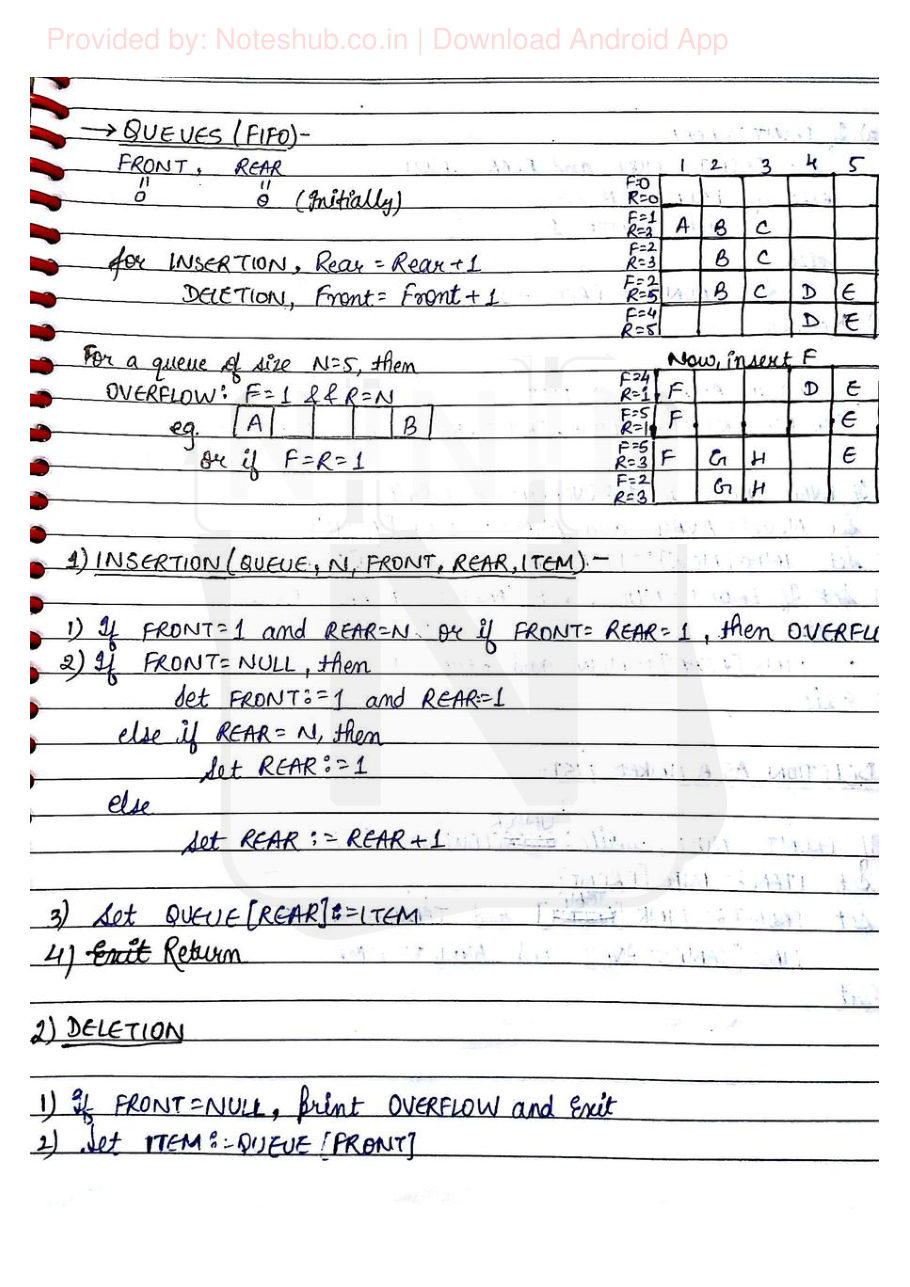 Provided by: Noteshub.co.in | Download Android App
→ QUEUES (FIFO)-
FRONT, REAR
" "
0 0 (Initially)
for INSERTION, Rear = Rear + 1
DELETION, Front = Front + 1
1 2 3 4 5
F=0
R=0
F=1
R=3 A B C
F=2
R=3 B C
F=2
R=5 B C D E
F=4
R=5 D E
For a queue of size N=5, then
OVERFLOW: F=1 && R=N
eg. A B
or if F=R=1
Now, insert F
F=4
R=1 F D E
F=5
R=1 F E
F=5
R=3 F G H E
F=2
R=3 G H
1) INSERTION (QUEUE, N, FRONT, REAR, ITEM):-
1) If FRONT=1 and REAR=N or if FRONT= REAR=1, then OVERFL
2) If FRONT=NULL, then
Set FRONT:=1 and REAR:=1
else if REAR= N, then
Set REAR:=1
else
set REAR := REAR+1
3) Set QUEUE[REAR]:=ITEM
4) Exit Return
2) DELETION
1) If FRONT=NULL, print OVERFLOW and Exit
2) Set ITEM:=QUEUE[FRONT]